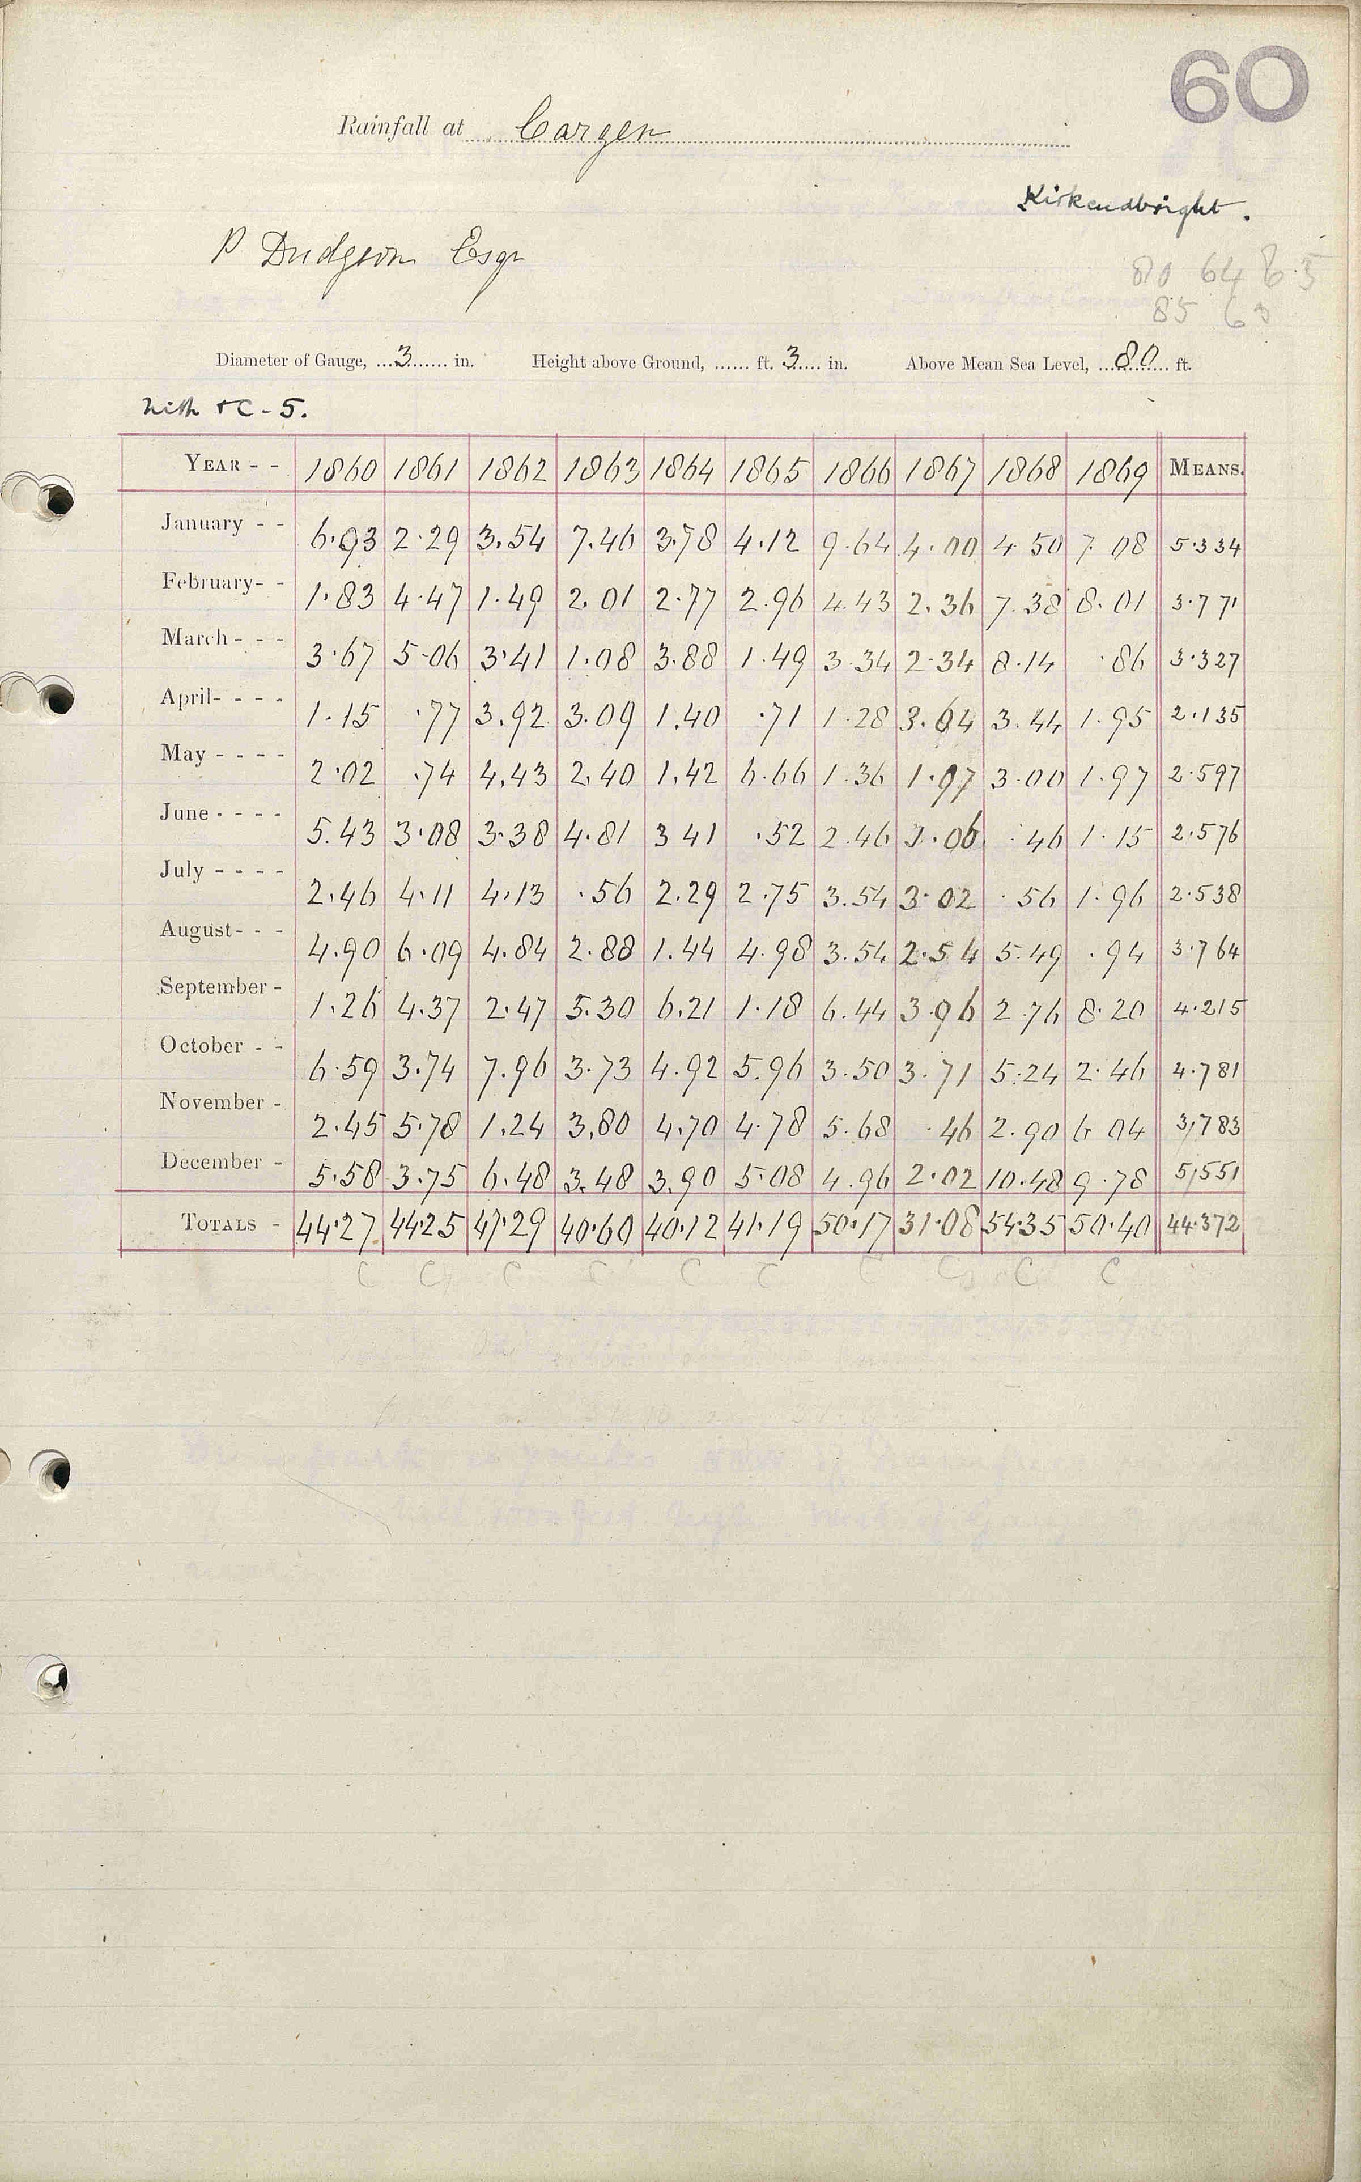 60
Rainfall at Cargen
Kirkcudbright.
P Dudgeon Esqr
80 64 6.5
85 60
Diameter of Gauge, ...3....... in. Height above Ground, ...... ft. 3..... in. Above Mean Sea Level, ...80... ft.
Nith & C - 5.
YEAR - - 1860 1861 1862 1863 1864 1865 1866 1867 1868 1869 MEANS.
January - - 6.93 2.29 3.54 7.46 3.78 4.12 9.64 4.00 4.50 7.08 5.334
February - - 1.83 4.47 1.49 2.01 2.77 2.96 4.43 2.36 7.38 8.01 3.771
March - - - 3.67 5.06 3.41 1.08 3.88 1.49 3.34 2.34 8.14 .86 3.327
April - - - - 1.15 .77 3.92 3.09 1.40 .71 1.28 3.64 3.44 1.95 2.135
May - - - - 2.02 .74 4.43 2.40 1.42 6.66 1.36 1.97 3.00 1.97 2.597
June - - - - 5.43 3.08 3.38 4.81 3 41 .52 2.46 1.06 .46 1.15 2.576
July - - - - 2.46 4.11 4.13 .56 2.29 2.75 3.54 3.02 .56 1.96 2.538
August - - - 4.90 6.09 4.84 2.88 1.44 4.98 3.54 2.54 5.49 .94 3.764
September - 1.26 4.37 2.47 5.30 6.21 1.18 6.44 3.96 2.76 8.20 4.215
October - - 6.59 3.74 7.96 3.73 4.92 5.96 3.50 3.71 5.24 2.46 4.781
November - 2.45 5.78 1.24 3.80 4.70 4.78 5.68 .46 2.90 6.04 3,783
December - 5.58 3.75 6.48 3.48 3.90 5.08 4.96 2.02 10.48 9.78 5,551
TOTALS - 44.27 44.25 47.29 40.60 40.12 41.19 50.17 31.08 54.35 50.40 44.372
C C C C C C C C C